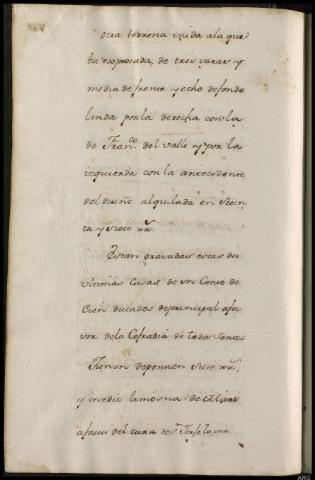 otra terrena unida ala que
ba expresada, de tres varas y
media de frente y ocho de fondo
linda por la derecha con la
de Fran.co del valle y por la
izquierda con la antecedente
del dueño alquilada en seten
ta y siete rr.s
Estan gravadas estas dos
ultimas casas de un Censo de
Cien ducados de principal a fa
vor de la Cofradia de todos santos
Tienen de pension siete rr.s
y medio limosna de Misas
a favor del cura de S.n
ARG